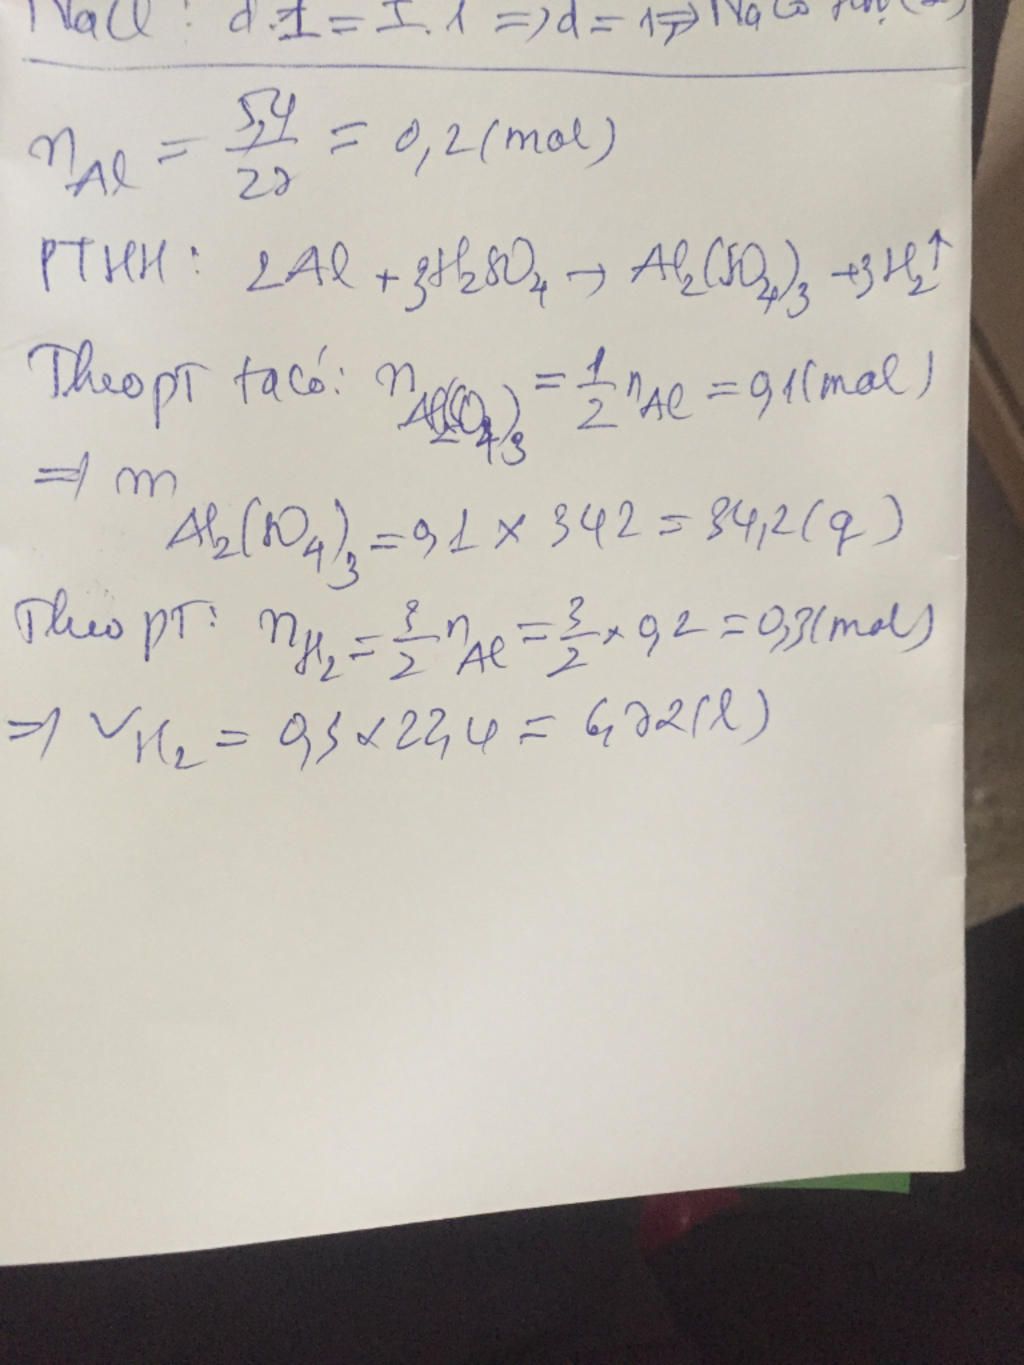 NaCl : d.I = I.1 => d = 1 => Na có
n_Al = 5,4/27 = 0,2 (mol)
PTHH : 2Al + 3H₂SO₄ → Al₂(SO₄)₃ + 3H₂↑
Theo pT ta có: n_Al₂(SO₄)₃ = 1/2 n_Al = 0,1 (mol)
=> m
Al₂(SO₄)₃ = 0,1 × 342 = 34,2 (g)
Theo pT: n_H₂ = 3/2 n_Al = 3/2 × 0,2 = 0,3 (mol)
=> V_H₂ = 0,3 × 22,4 = 6,72 (l)